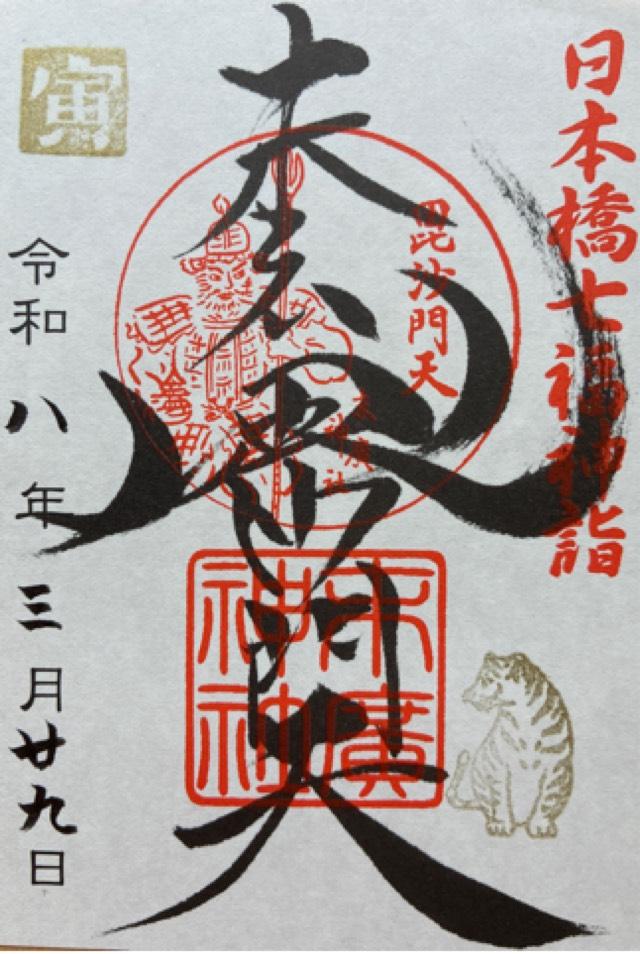 日本橋七福神詣
毘沙門天
末廣神社
毘沙門天
末廣
神社
寅
令和八年三月廿九日